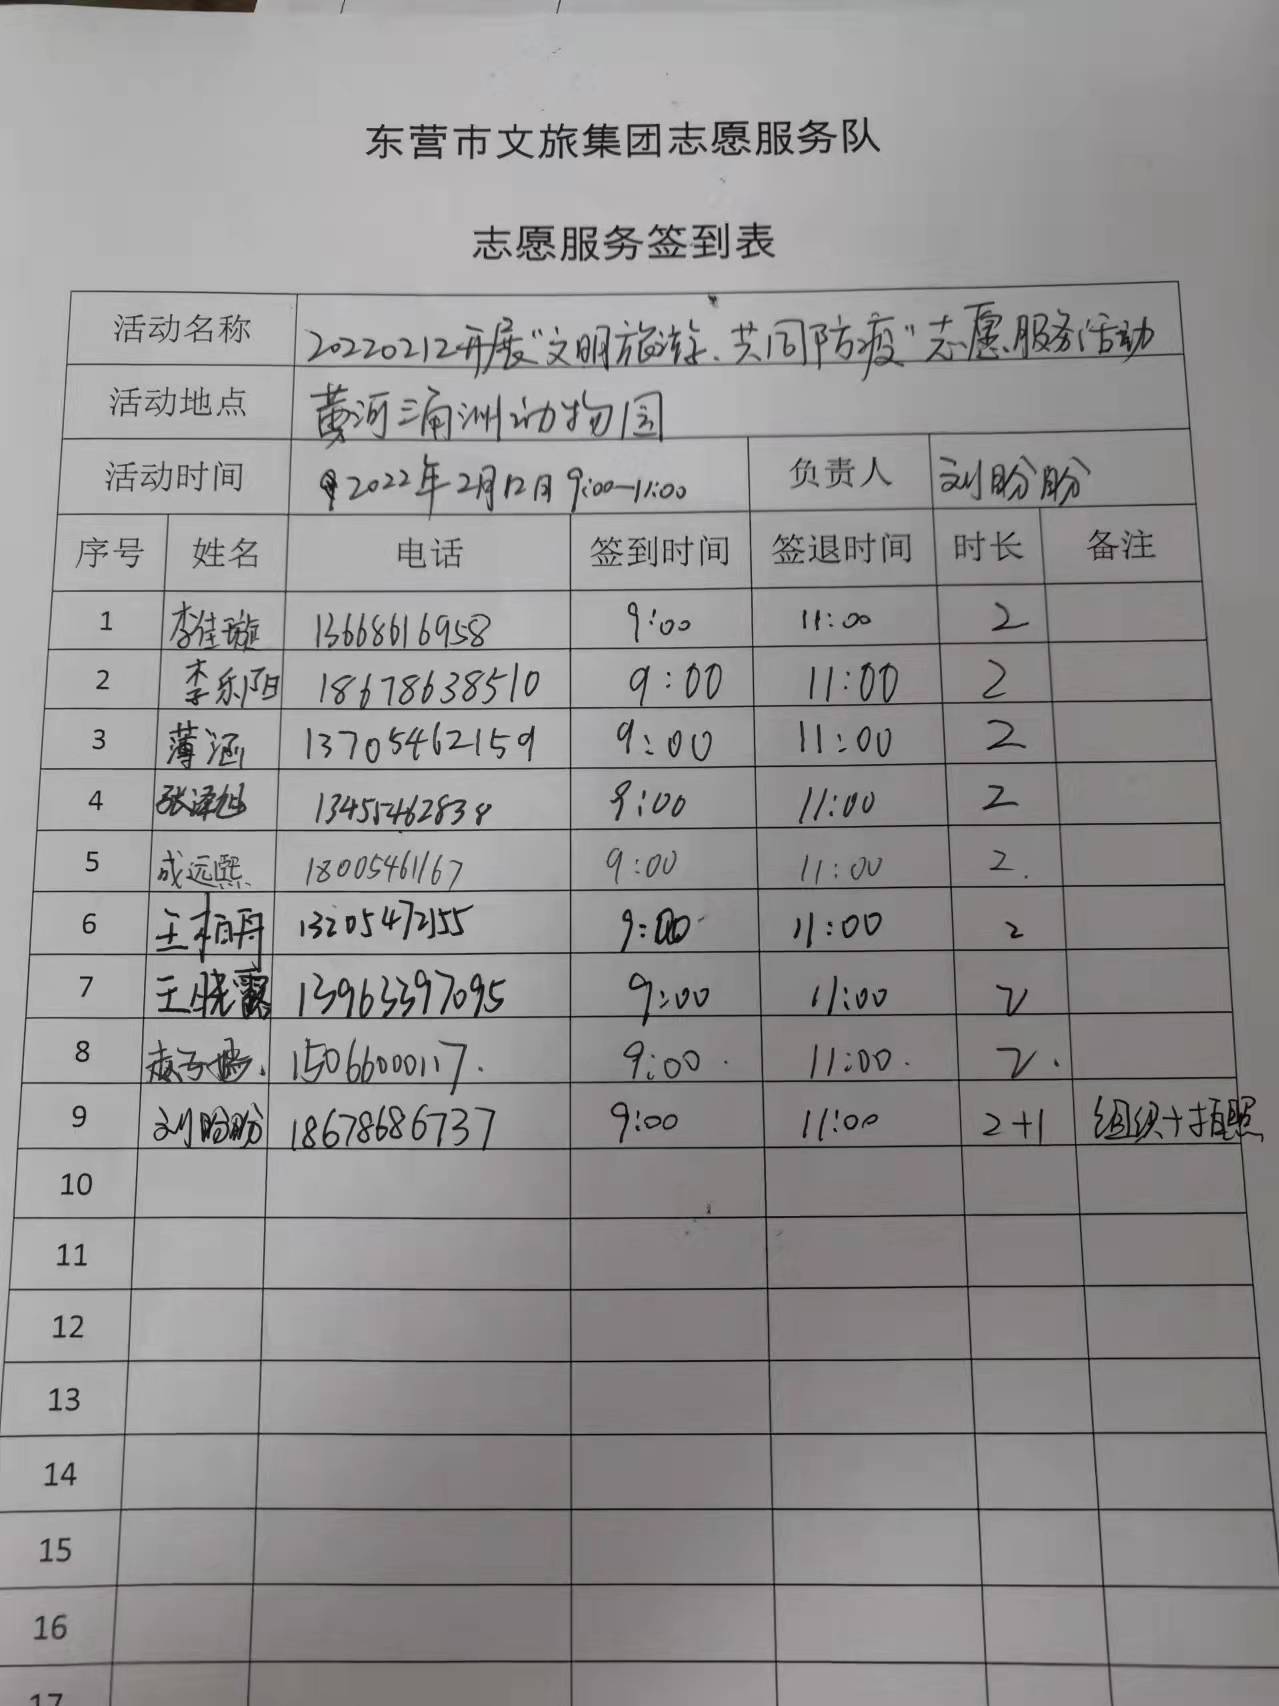 东营市文旅集团志愿服务队
志愿服务签到表
活动名称 20220212开展“文明旅游、共同防疫”志愿服务活动
活动地点 黄河三角洲动物园
活动时间 2022年2月12日 9:00—11:00 负责人 刘盼盼
序号 姓名 电话 签到时间 签退时间 时长 备注
1 李佳璇 13668616958 9:00 11:00 2
2 李乐阳 18678638510 9:00 11:00 2
3 薄涵 13705462159 9:00 11:00 2
4 张泽旭 13455462838 9:00 11:00 2
5 成远熙 18005461167 9:00 11:00 2.
6 王柏冉 13205472155 9:00 11:00 2
7 王晓露 13963397095 9:00 11:00 2
8 15066000117. 9:00. 11:00. 2.
9 刘盼盼 18678686737 9:00 11:00 2+1 组织+拍照
10
11
12
13
14
15
16
17